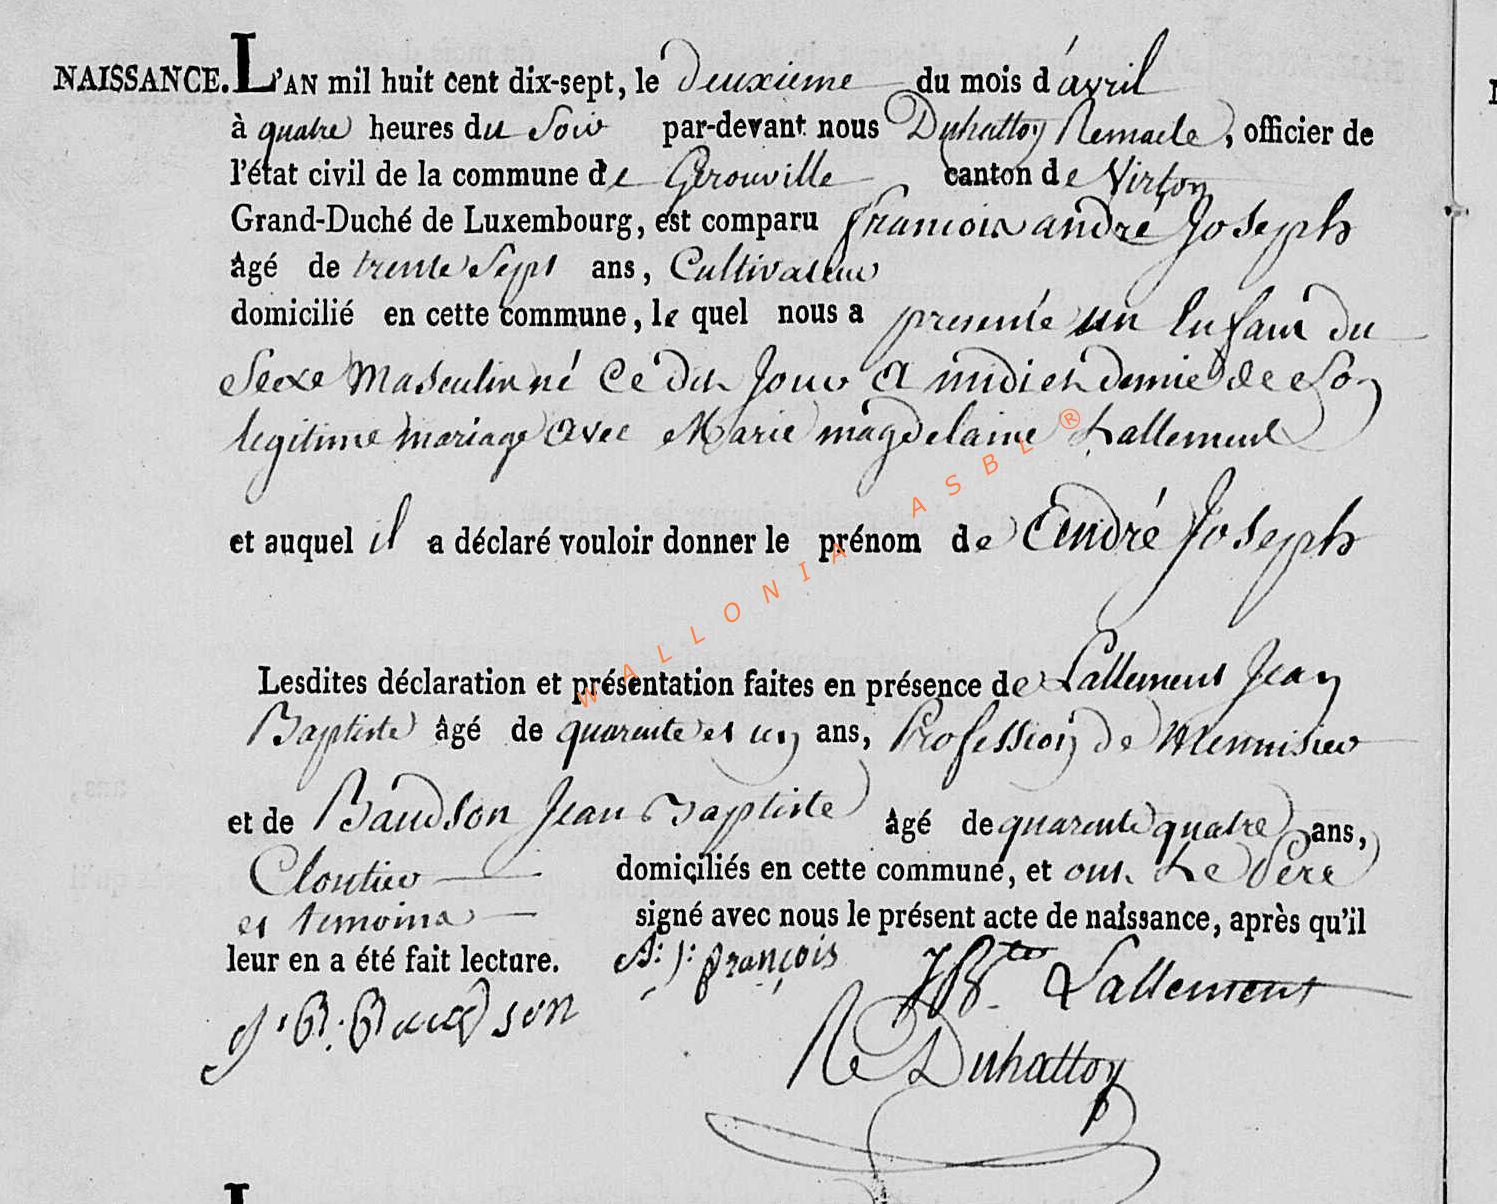 NAISSANCE. L'AN mil huit cent dix-sept, le deuxieme du mois d'avril
à quatre heures du Soir par-devant nous Duhattoy Remacle, officier de
l'état civil de la commune de Gerouville canton de Virton
Grand-Duché de Luxembourg, est comparu francois andré Joseph
âgé de trente Sept ans, Cultivateur
domicilié en cette commune, le quel nous a presenté un Enfant du
Sexe Masculin né Ce dit Jour a midi et demie de Son
legitime mariage avec Marie magdelaine Lallement
et auquel il a déclaré vouloir donner le prénom de André Joseph
Lesdites déclaration et présentation faites en présence de Lallement Jean
Baptiste âgé de quarente et un ans, Profession de Mennisier
et de Baudson Jean Baptiste âgé de quarente quatre ans,
Cloutier domiciliés en cette commune, et ont Le Pere
et temoins signé avec nous le présent acte de naissance, après qu'il
leur en a été fait lecture. A: J: françois JBte Lallement
J. B. Baudson
Re Duhattoy
WALLONIA ASBL ®
L